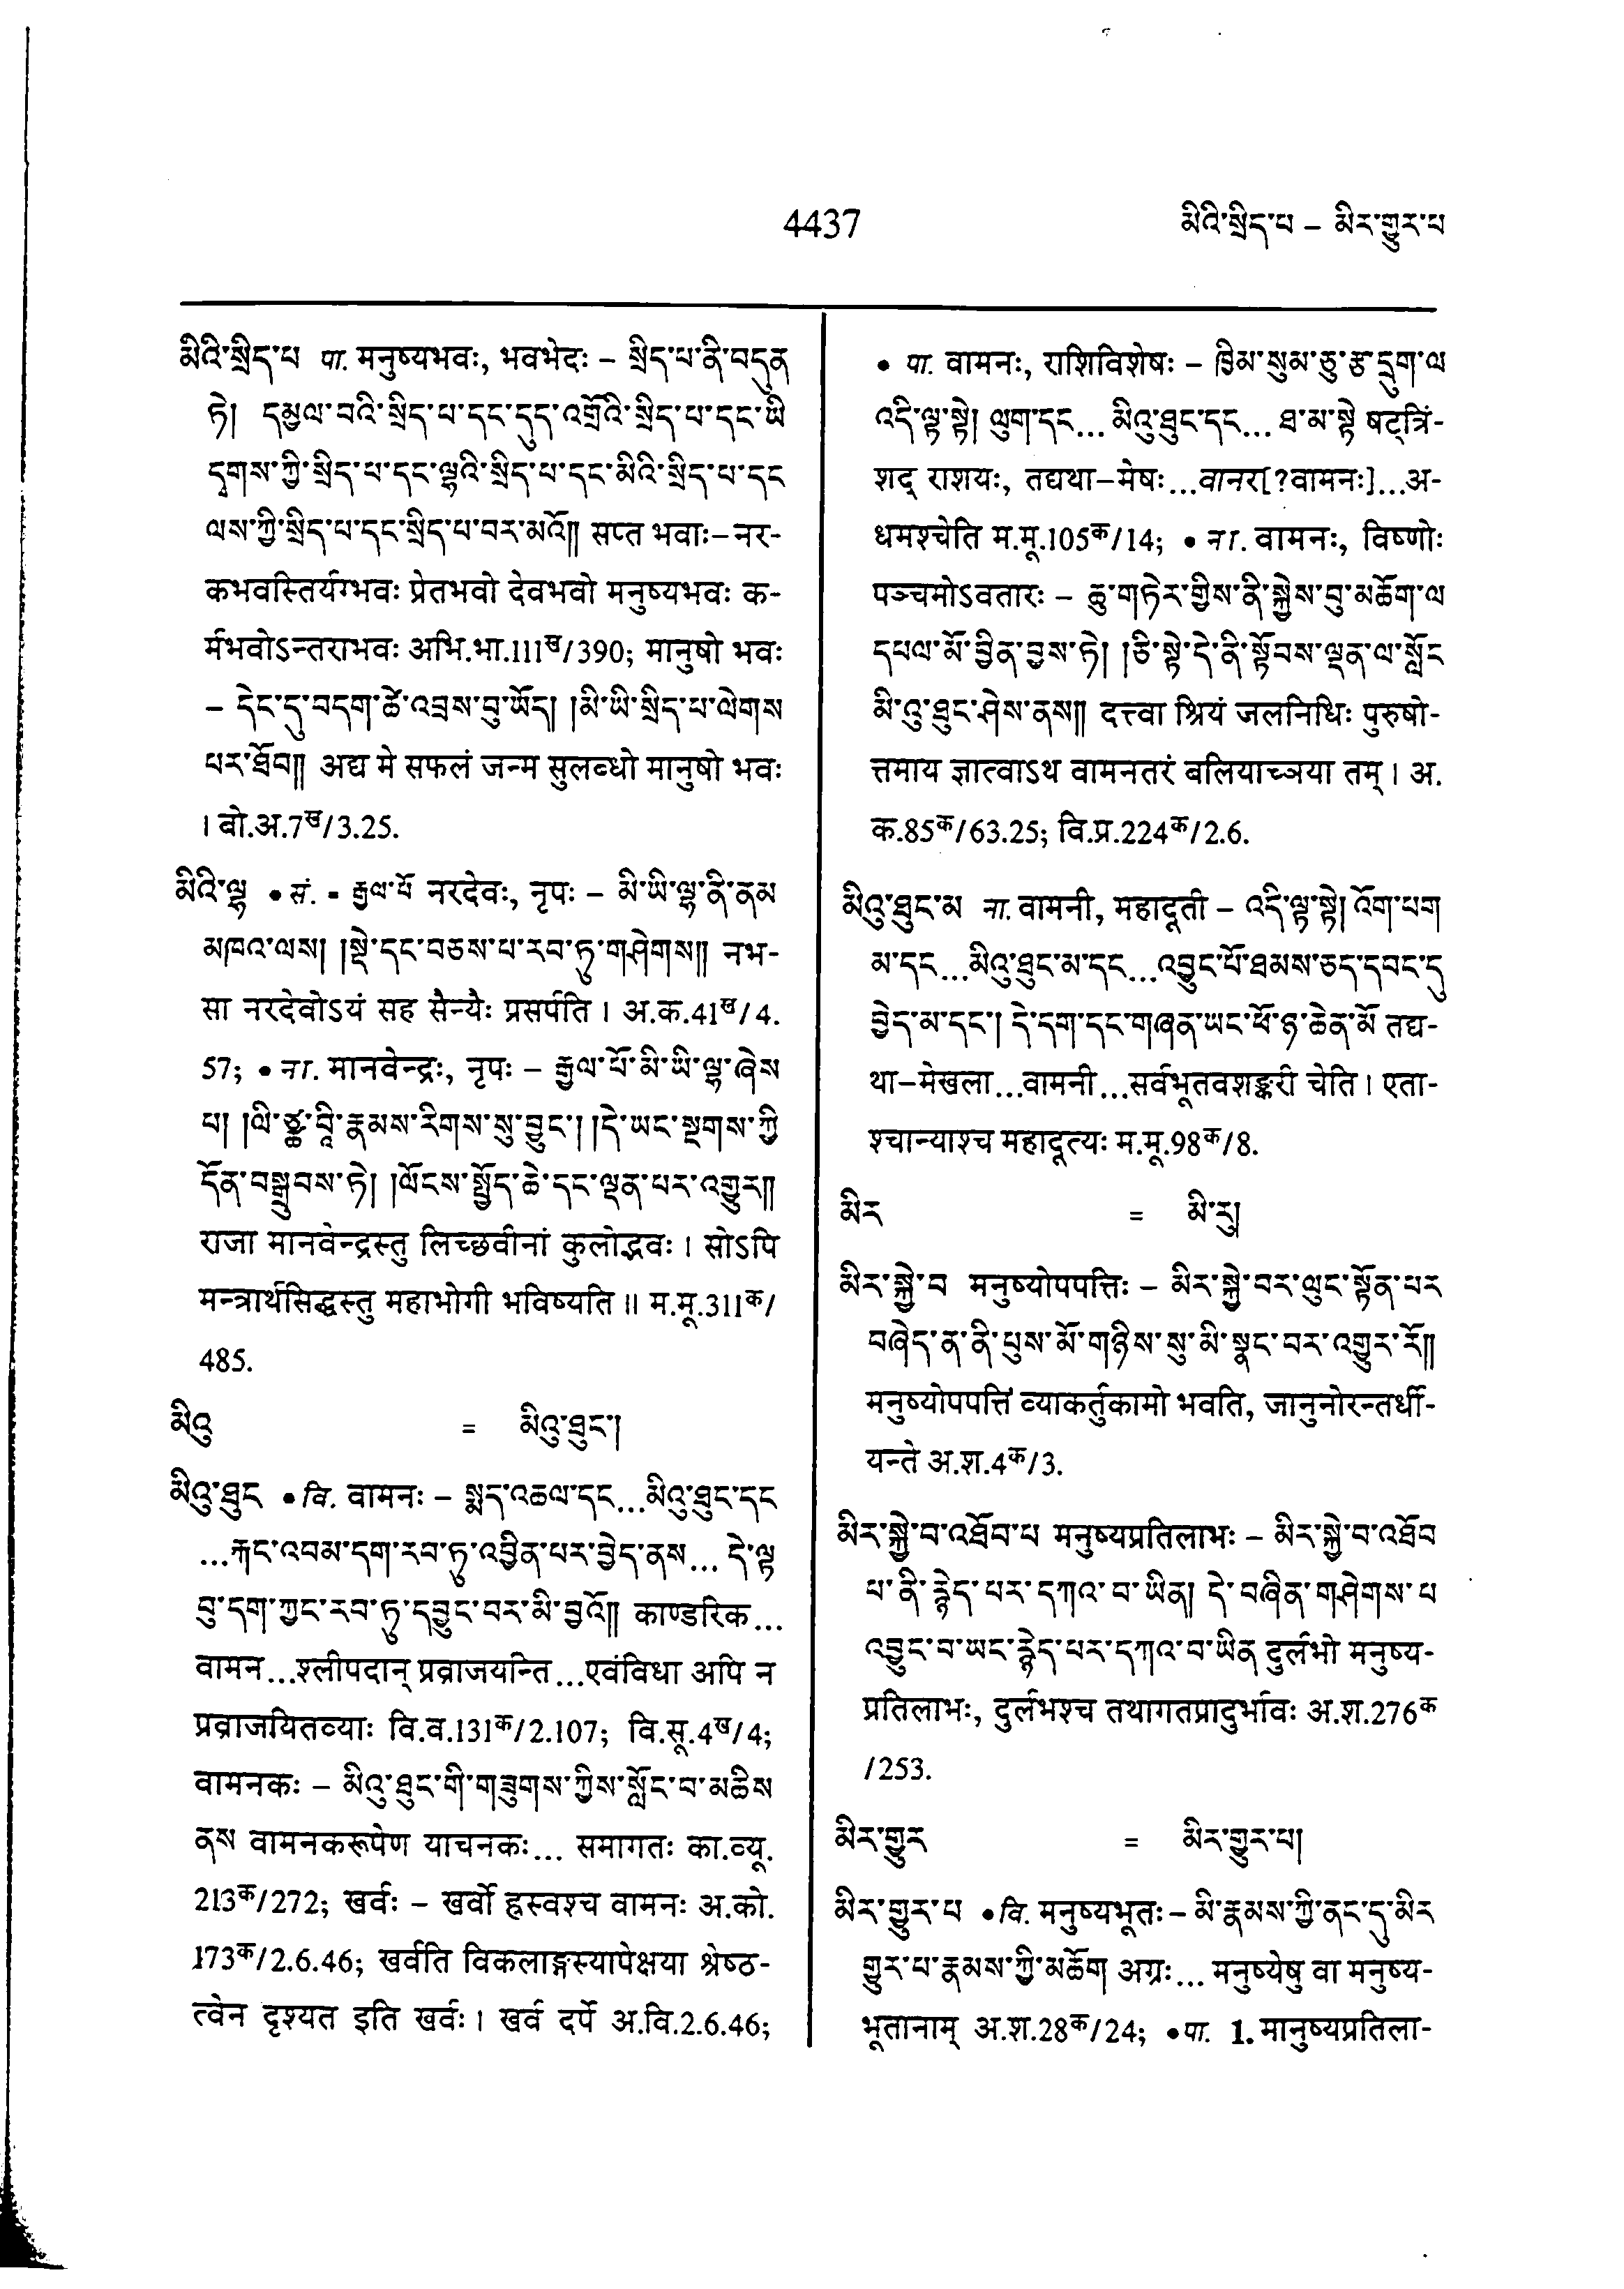 4437
མིའི་སྲིད་པ – མིར་གྱུར་པ
མིའི་སྲིད་པ पा. मनुष्यभवः, भवभेदः – སྲིད་པ་ནི་བདུན
ཏེ། དམྱལ་བའི་སྲིད་པ་དང་དུད་འགྲོའི་སྲིད་པ་དང་ཡི
དྭགས་ཀྱི་སྲིད་པ་དང་ལྷའི་སྲིད་པ་དང་མིའི་སྲིད་པ་དང
ལས་ཀྱི་སྲིད་པ་དང་སྲིད་པ་བར་མའོ།། सप्त भवाः–नर-
कभवस्तिर्यग्भवः प्रेतभवो देवभवो मनुष्यभवः क-
र्मभवोऽन्तराभवः अभि.भा.111ख/390; मानुषो भवः
– དེང་དུ་བདག་ཚེ་འབྲས་བུ་ཡོད། །མི་ཡི་སྲིད་པ་ལེགས
པར་ཐོབ།། अद्य मे सफलं जन्म सुलब्धो मानुषो भवः
। बो.अ.7ख/3.25.
མིའི་ལྷ • सं. = རྒྱལ་པོ नरदेवः, नृपः – མི་ཡི་ལྷ་ནི་ནམ
མཁའ་ལས། །སྡེ་དང་བཅས་པ་རབ་ཏུ་གཤེགས།། नभ-
सा नरदेवोऽयं सह सैन्यैः प्रसर्पति । अ.क.41ख/4.
57; • ना. मानवेन्द्रः, नृपः – རྒྱལ་པོ་མི་ཡི་ལྷ་ཞེས
པ། །ལི་ཙྪ་བཱི་རྣམས་རིགས་སུ་བྱུང་། །དེ་ཡང་སྔགས་ཀྱི
དོན་བསྒྲུབས་ཏེ། །ལོངས་སྤྱོད་ཆེ་དང་ལྡན་པར་འགྱུར།།
राजा मानवेन्द्रस्तु लिच्छवीनां कुलोद्भवः । सोऽपि
मन्त्रार्थसिद्धस्तु महाभोगी भविष्यति ॥ म.मू.311क/
485.
མིའུ = མིའུ་ཐུང་།
མིའུ་ཐུང • वि. वामनः – སྨད་འཆལ་དང...མིའུ་ཐུང་དང
...རྐང་འབམ་དག་རབ་ཏུ་འབྱིན་པར་བྱེད་ནས... དེ་ལྟ
བུ་དག་ཀྱང་རབ་ཏུ་དབྱུང་བར་མི་བྱའོ།། काण्डरिक...
वामन...श्लीपदान् प्रव्राजयन्ति...एवंविधा अपि न
प्रव्राजयितव्याः वि.व.131क/2.107; वि.सू.4ख/4;
वामनकः – མིའུ་ཐུང་གི་གཟུགས་ཀྱིས་སློང་བ་མཆིས
ནས वामनकरूपेण याचनकः... समागतः का.व्यू.
213क/272; खर्वः – खर्वो ह्रस्वश्च वामनः अ.को.
173क/2.6.46; खर्वति विकलाङ्गस्यापेक्षया श्रेष्ठ-
त्वेन दृश्यत इति खर्वः । खर्व दर्पे अ.वि.2.6.46;
• पा. वामनः, राशिविशेषः – ཁྱིམ་སུམ་ཅུ་རྩ་དྲུག་ལ
འདི་ལྟ་སྟེ། ལུག་དང... མིའུ་ཐུང་དང... ཐ་མ་སྟེ षट्त्रिं-
शद् राशयः, तद्यथा–मेषः...वानर[?वामनः]...अ-
धमश्चेति म.मू.105क/14; • ना. वामनः, विष्णोः
पञ्चमोऽवतारः – ཆུ་གཏེར་གྱིས་ནི་སྐྱེས་བུ་མཆོག་ལ
དཔལ་མོ་བྱིན་བྱས་ཏེ། །ཅི་སྟེ་དེ་ནི་སྟོབས་ལྡན་ལ་སློང
མི་འུ་ཐུང་ཤེས་ནས།། दत्त्वा श्रियं जलनिधिः पुरुषो-
त्तमाय ज्ञात्वाऽथ वामनतरं बलियाच्ञया तम् । अ.
क.85क/63.25; वि.प्र.224क/2.6.
མིའུ་ཐུང་མ ना. वामनी, महादूती – འདི་ལྟ་སྟེ། འོག་པག
མ་དང...མིའུ་ཐུང་མ་དང...འབྱུང་པོ་ཐམས་ཅད་དབང་དུ
བྱེད་མ་དང་། དེ་དག་དང་གཞན་ཡང་ཕོ་ཉ་ཆེན་མོ तद्य-
था–मेखला...वामनी...सर्वभूतवशङ्करी चेति । एता-
श्चान्याश्च महादूत्यः म.मू.98क/8.
མིར = མི་རུ།
མིར་སྐྱེ་བ मनुष्योपपत्तिः – མིར་སྐྱེ་བར་ལུང་སྟོན་པར
བཞེད་ན་ནི་པུས་མོ་གཉིས་སུ་མི་སྣང་བར་འགྱུར་རོ།།
मनुष्योपपत्तिं व्याकर्तुकामो भवति, जानुनोरन्तर्धी-
यन्ते अ.श.4क/3.
མིར་སྐྱེ་བ་འཐོབ་པ मनुष्यप्रतिलाभः – མིར་སྐྱེ་བ་འཐོབ
པ་ནི་རྙེད་པར་དཀའ་བ་ཡིན། དེ་བཞིན་གཤེགས་པ
འབྱུང་བ་ཡང་རྙེད་པར་དཀའ་བ་ཡིན दुर्लभो मनुष्य-
प्रतिलाभः, दुर्लभश्च तथागतप्रादुर्भावः अ.श.276क
/253.
མིར་གྱུར = མིར་གྱུར་པ།
མིར་གྱུར་པ • वि. मनुष्यभूतः – མི་རྣམས་ཀྱི་ནང་དུ་མིར
གྱུར་པ་རྣམས་ཀྱི་མཆོག अग्रः... मनुष्येषु वा मनुष्य-
भूतानाम् अ.श.28क/24; • पा. 1. मानुष्यप्रतिला-